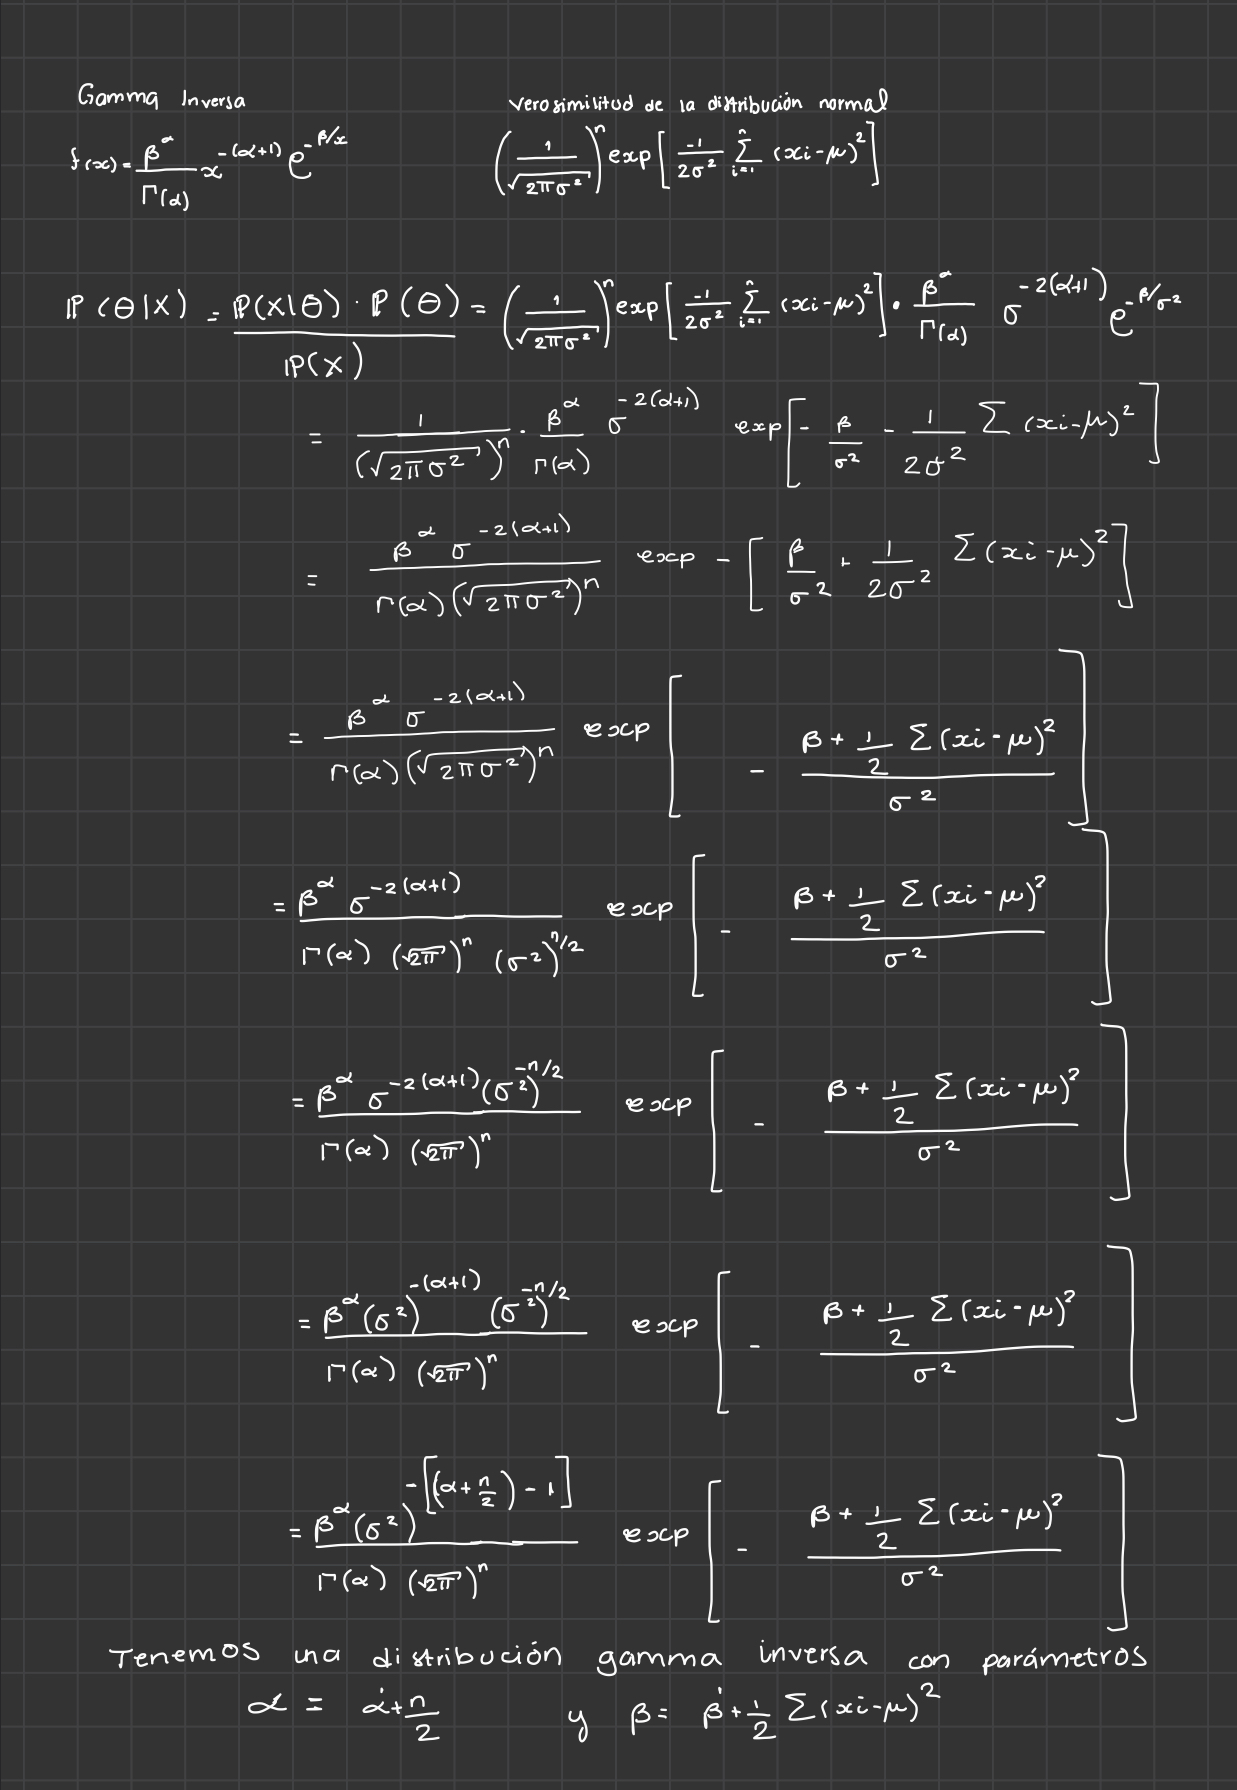 Gamma Inversa
Verosimilitud de la distribución normal
f(x) = β^α / Γ(α) x^-(α+1) e^-β/x
(1 / √(2πσ²))^n exp[ -1/2σ² Σ_{i=1}^n (xi-μ)² ]
ℙ(θ|X) = ℙ(X|θ) · ℙ(θ) / ℙ(X) = (1 / √(2πσ²))^n exp[ -1/2σ² Σ_{i=1}^n (xi-μ)² ] · β^α / Γ(α) σ^-2(α+1) e^-β/σ²
= 1 / (√(2πσ²))^n · β^α / Γ(α) σ^-2(α+1) exp[ - β/σ² - 1/2σ² Σ (xi-μ)² ]
= β^α σ^-2(α+1) / Γ(α)(√(2πσ²))^n exp - [ β/σ² + 1/2σ² Σ(xi-μ)² ]
= β^α σ^-2(α+1) / Γ(α)(√(2πσ²))^n exp [ - (β + 1/2 Σ(xi-μ)²) / σ² ]
= β^α σ^-2(α+1) / Γ(α) (√2π)^n (σ²)^n/2 exp [ - (β + 1/2 Σ(xi-μ)²) / σ² ]
= β^α σ^-2(α+1) (σ²)^-n/2 / Γ(α) (√2π)^n exp [ - (β + 1/2 Σ(xi-μ)²) / σ² ]
= β^α (σ²)^-(α+1) (σ²)^-n/2 / Γ(α) (√2π)^n exp [ - (β + 1/2 Σ(xi-μ)²) / σ² ]
= β^α (σ²)^-[(α+n/2)-1] / Γ(α) (√2π)^n exp [ - (β + 1/2 Σ(xi-μ)²) / σ² ]
Tenemos una distribución gamma inversa con parámetros
α = α̇+n/2 y β = β̇+1/2 Σ(xi-μ)²